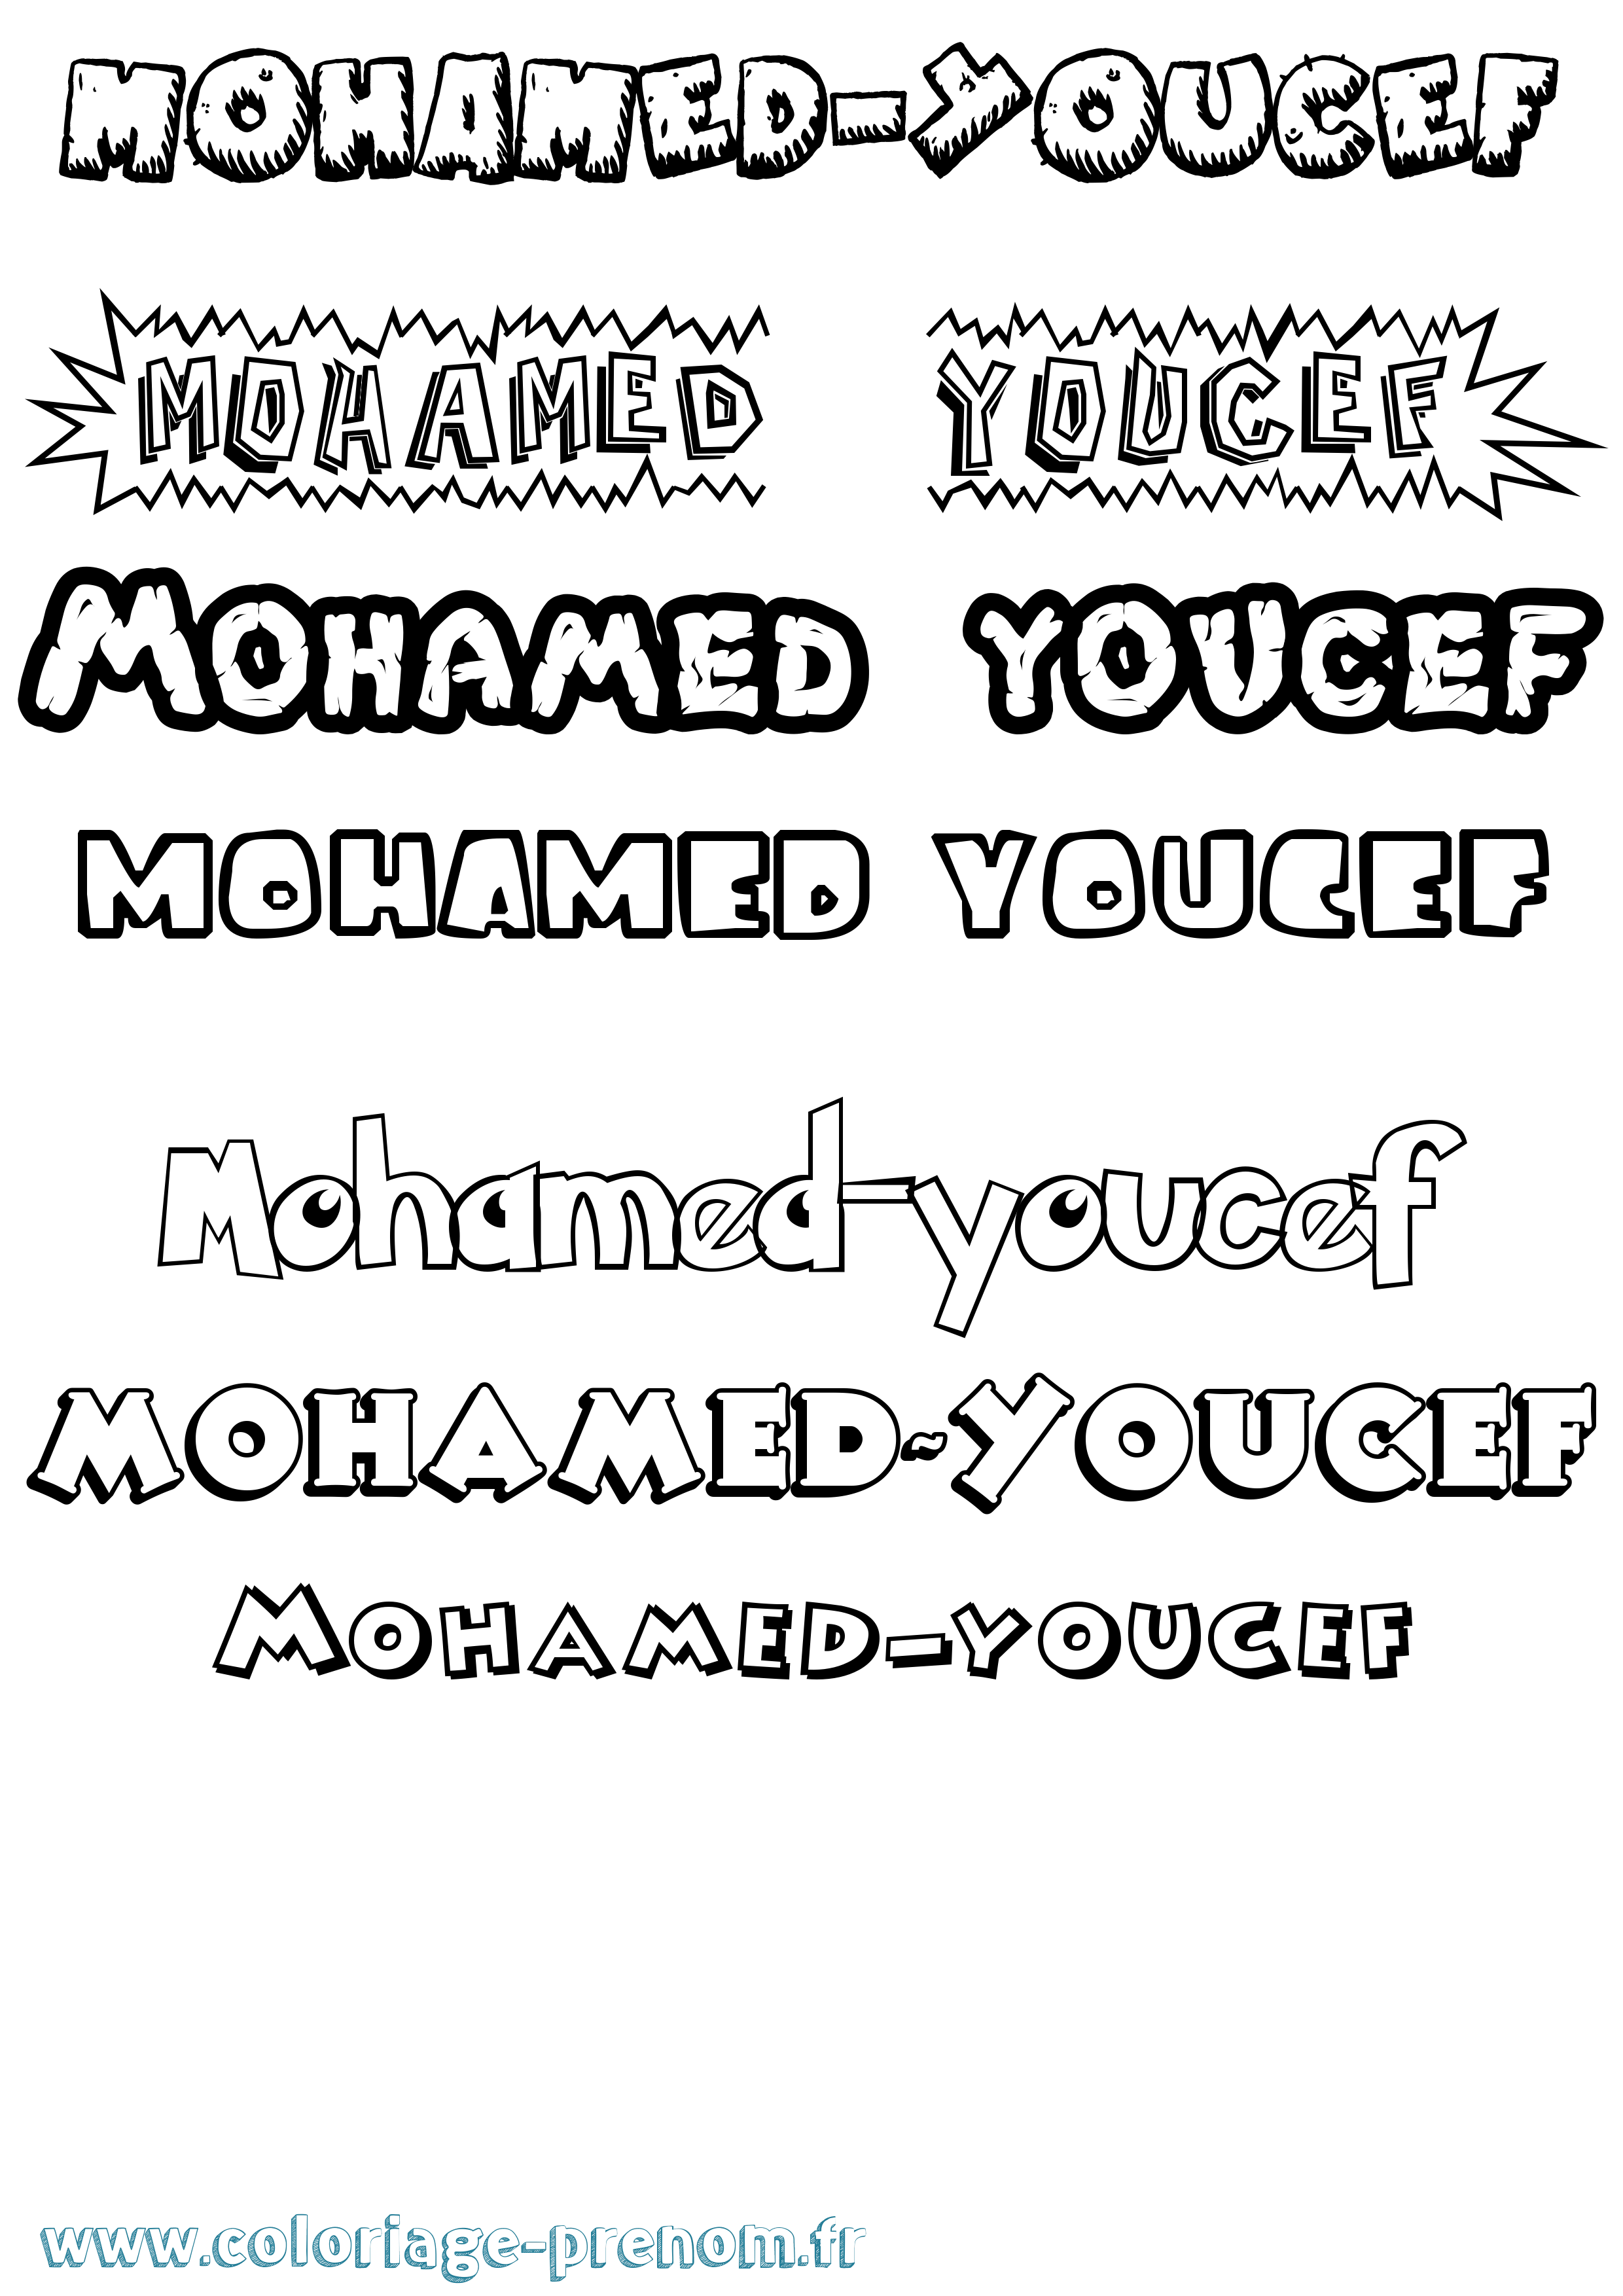 MOHAMED-YOUCEF
MOHAMED YOUCEF
MOHAMED YOUCEF
MOHAMED YOUCEF
Mohamed-youcef
MOHAMED-YOUCEF
MOHAMED-YOUCEF
www.coloriage-prenom.fr